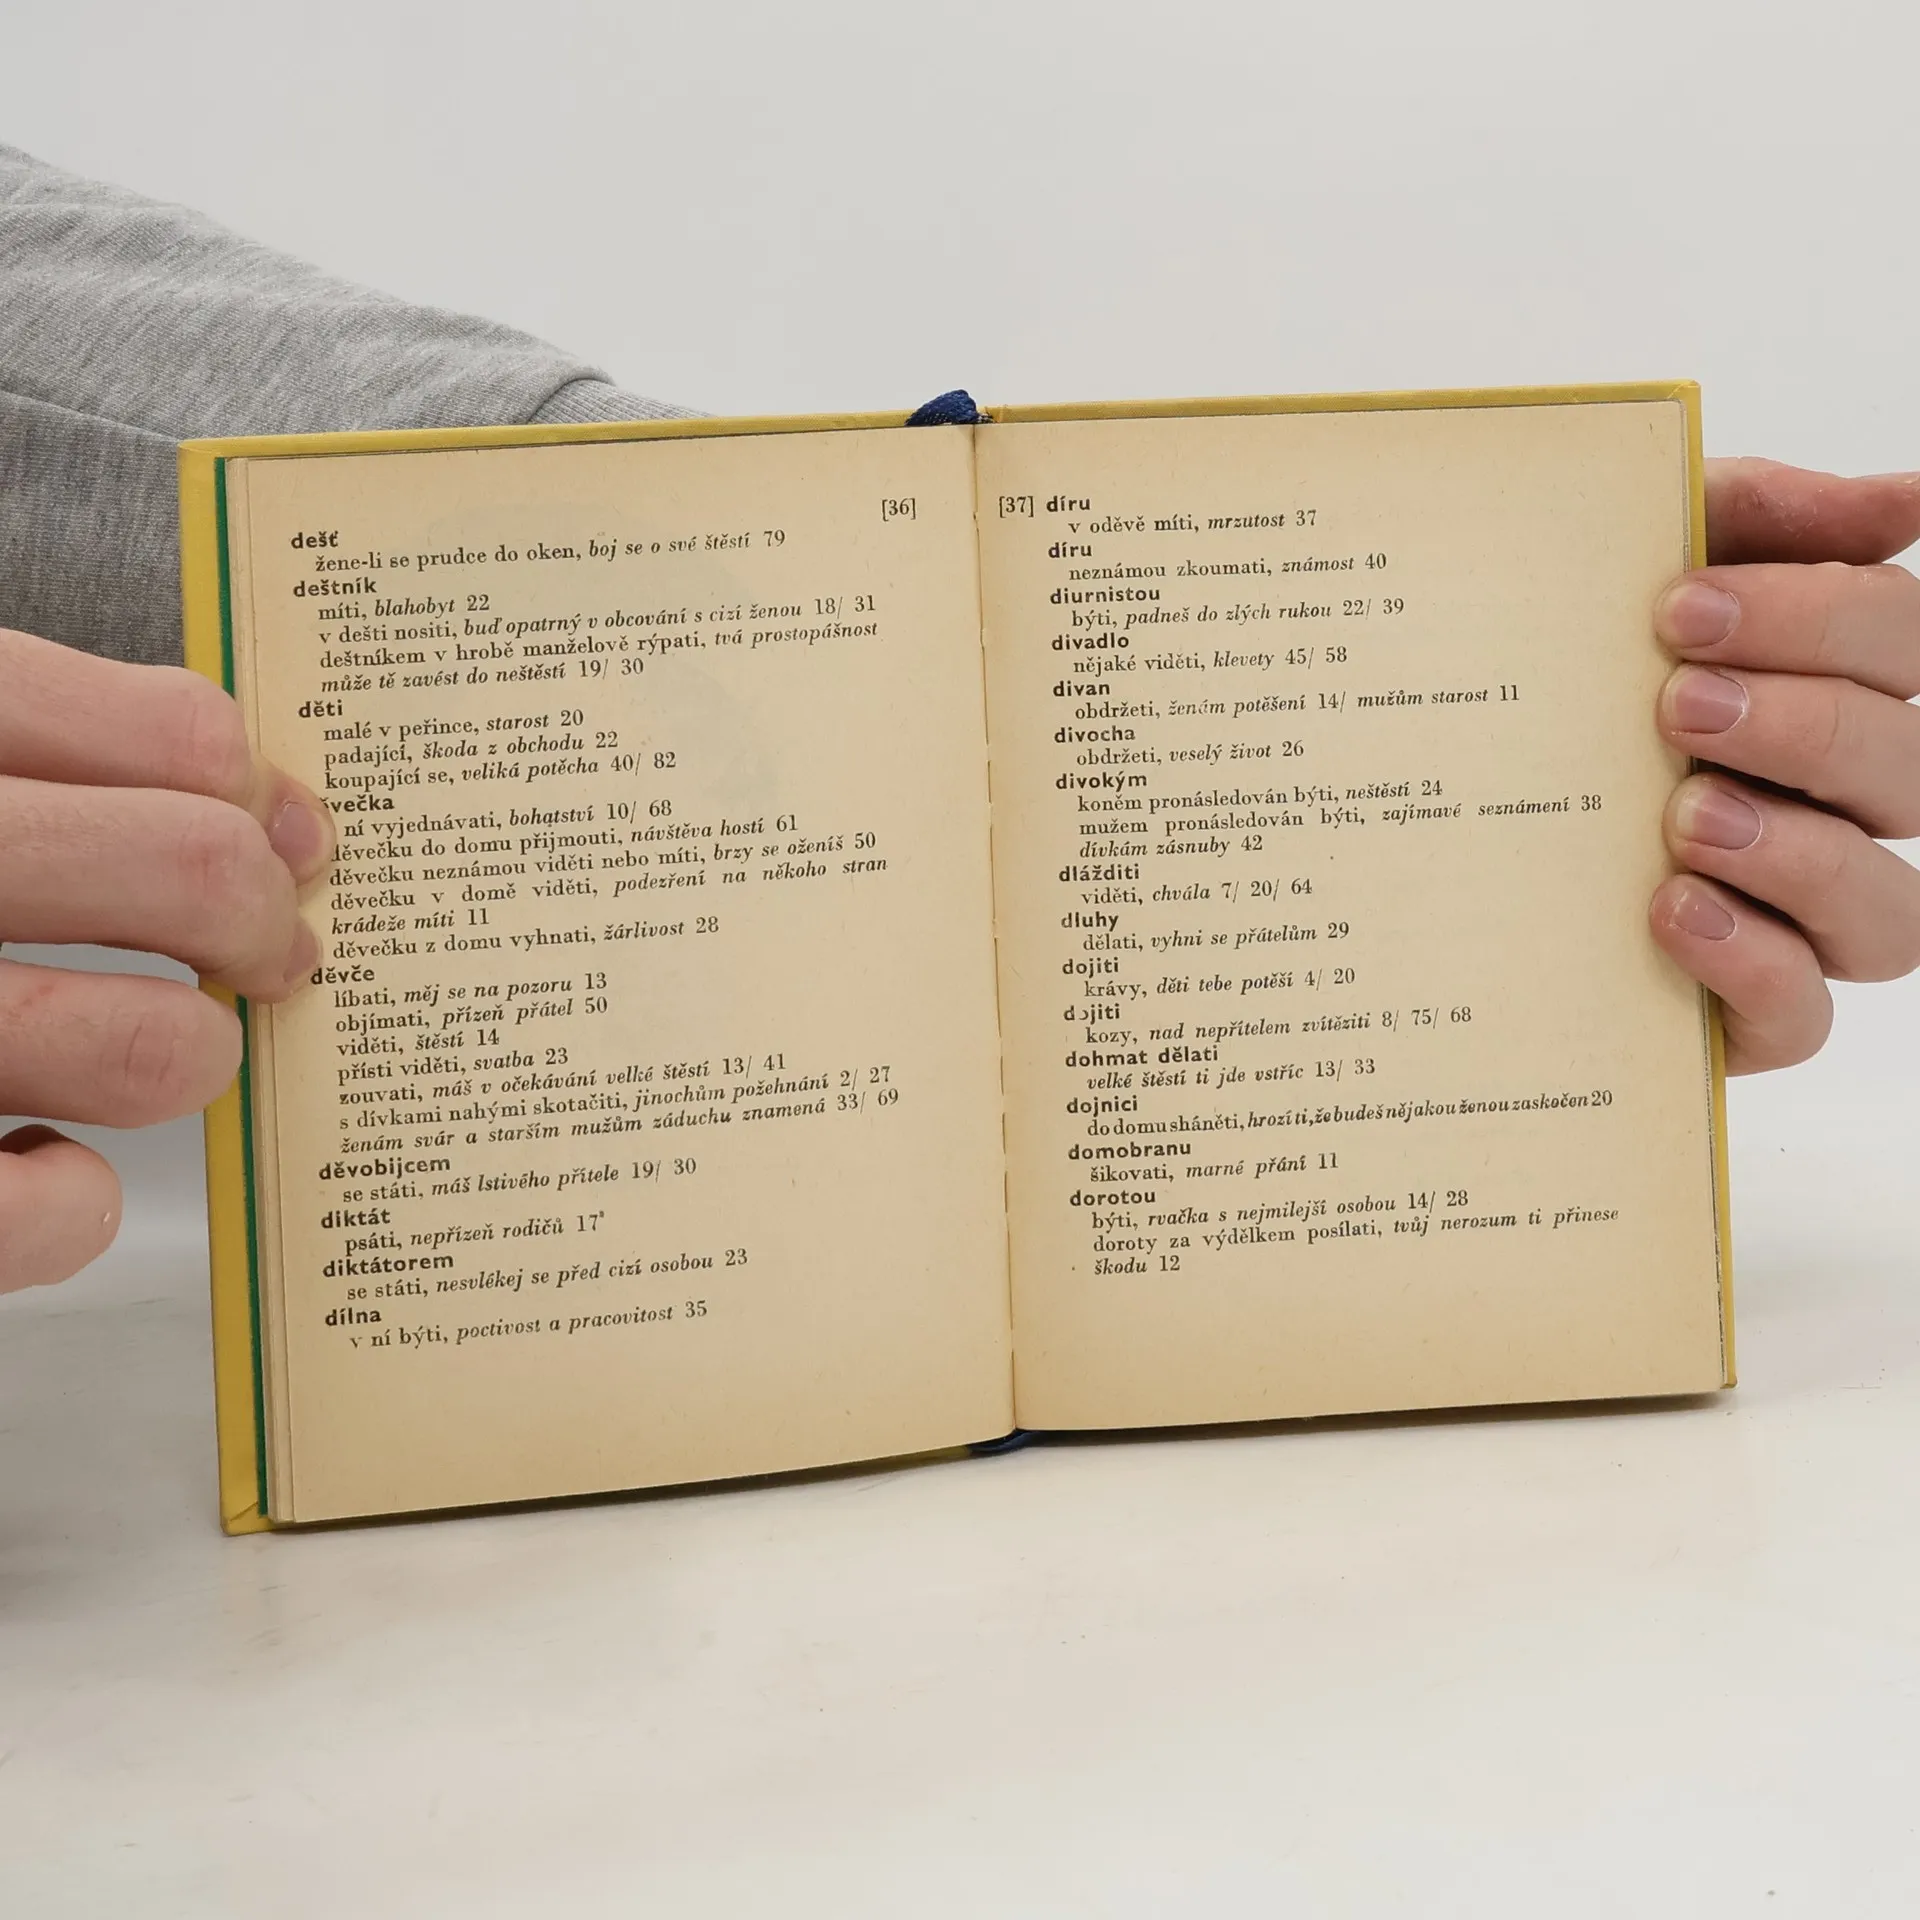 [36]
dešť
žene-li se prudce do oken, boj se o své štěstí 79
deštník
míti, blahobyt 22
v dešti nositi, buď opatrný v obcování s cizí ženou 18/ 31
deštníkem v hrobě manželově rýpati, tvá prostopášnost
může tě zavést do neštěstí 19/ 30
děti
malé v peřince, starost 20
padající, škoda z obchodu 22
koupající se, veliká potěcha 40/ 82
ěvečka
ní vyjednávati, bohatství 10/ 68
děvečku do domu přijmouti, návštěva hostí 61
děvečku neznámou viděti nebo míti, brzy se oženíš 50
děvečku v domě viděti, podezření na někoho stran
krádeže míti 11
děvečku z domu vyhnati, žárlivost 28
děvče
líbati, měj se na pozoru 13
objímati, přízeň přátel 50
viděti, štěstí 14
přísti viděti, svatba 23
zouvati, máš v očekávání velké štěstí 13/ 41
s dívkami nahými skotačiti, jinochům požehnání 2/ 27
ženám svár a starším mužům záduchu znamená 33/ 69
děvobijcem
se státi, máš lstivého přítele 19/ 30
diktát
psáti, nepřízeň rodičů 17
diktátorem
se státi, nesvlékej se před cizí osobou 23
dílna
v ní býti, poctivost a pracovitost 35
[37] díru
v oděvě míti, mrzutost 37
díru
neznámou zkoumati, známost 40
diurnistou
býti, padneš do zlých rukou 22/ 39
divadlo
nějaké viděti, klevety 45/ 58
divan
obdržeti, ženám potěšení 14/ mužům starost 11
divocha
obdržeti, veselý život 26
divokým
koněm pronásledován býti, neštěstí 24
mužem pronásledován býti, zajímavé seznámení 38
dívkám zásnuby 42
dlážditi
viděti, chvála 7/ 20/ 64
dluhy
dělati, vyhni se přátelům 29
dojiti
krávy, děti tebe potěší 4/ 20
dojiti
kozy, nad nepřítelem zvítěziti 8/ 75/ 68
dohmat dělati
velké štěstí ti jde vstříc 13/ 33
dojnici
do domu sháněti, hrozí ti, že budeš nějakou ženou zaskočen 20
domobranu
šikovati, marné přání 11
dorotou
býti, rvačka s nejmilejší osobou 14/ 28
doroty za výdělkem posílati, tvůj nerozum ti přinese
škodu 12